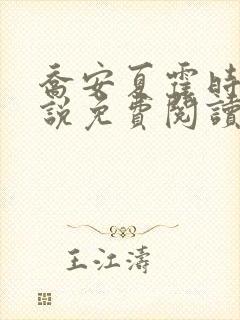 喬安夏霆時
説免費閱讀
王江濤